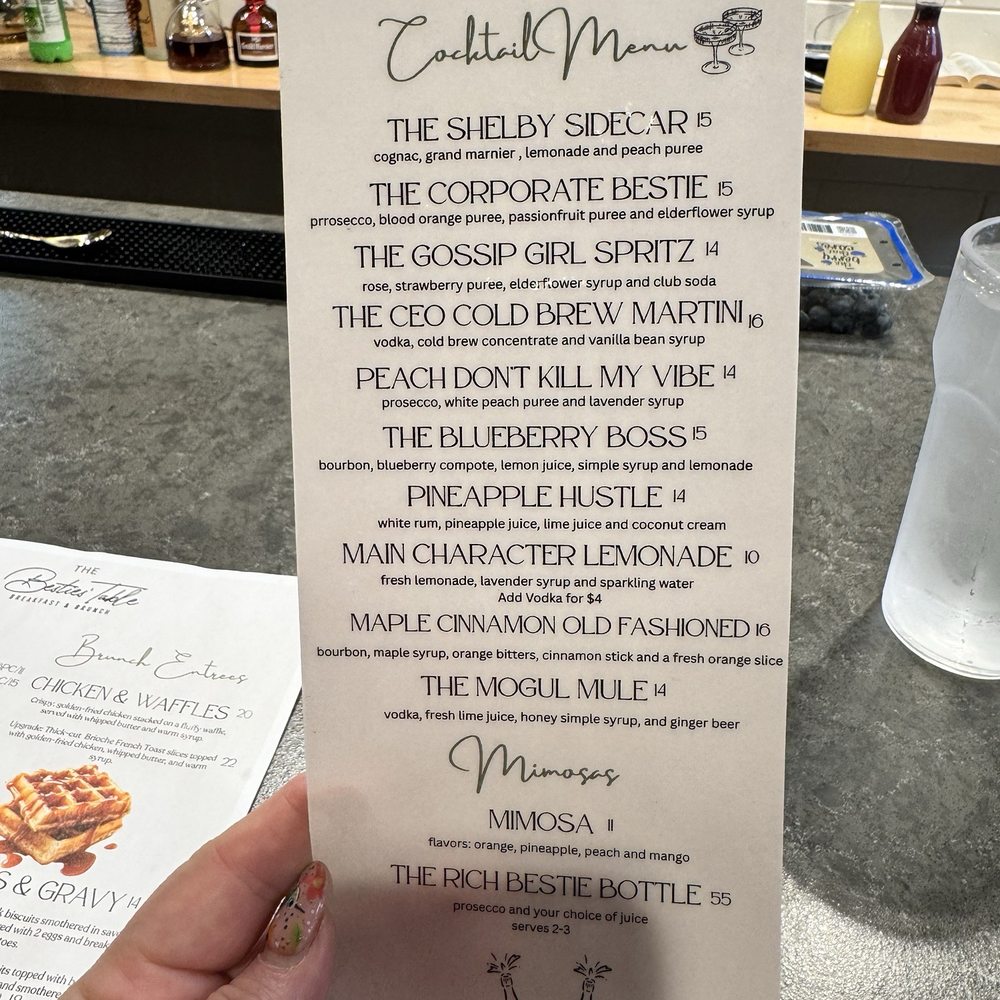 Cocktail Menu
THE SHELBY SIDECAR 15
cognac, grand marnier , lemonade and peach puree
THE CORPORATE BESTIE 15
prrosecco, blood orange puree, passionfruit puree and elderflower syrup
THE GOSSIP GIRL SPRITZ 14
rose, strawberry puree, elderflower syrup and club soda
THE CEO COLD BREW MARTINI 16
vodka, cold brew concentrate and vanilla bean syrup
PEACH DON'T KILL MY VIBE 14
prosecco, white peach puree and lavender syrup
THE BLUEBERRY BOSS 15
bourbon, blueberry compote, lemon juice, simple syrup and lemonade
PINEAPPLE HUSTLE 14
white rum, pineapple juice, lime juice and coconut cream
MAIN CHARACTER LEMONADE 10
fresh lemonade, lavender syrup and sparkling water
Add Vodka for $4
MAPLE CINNAMON OLD FASHIONED 16
bourbon, maple syrup, orange bitters, cinnamon stick and a fresh orange slice
THE MOGUL MULE 14
vodka, fresh lime juice, honey simple syrup, and ginger beer
Mimosas
MIMOSA 11
flavors: orange, pineapple, peach and mango
THE RICH BESTIE BOTTLE 55
prosecco and your choice of juice
serves 2-3
THE
Besties' Table
BREAKFAST & BRUNCH
Brunch Entrees
CHICKEN & WAFFLES 20
Crispy, golden-fried chicken stacked on a fluffy waffle,
served with whipped butter and warm syrup.
Upgrade: Thick-cut Brioche French Toast slices topped 22
with golden-fried chicken, whipped butter, and warm
syrup.
& GRAVY 14
biscuits smothered in
with 2 eggs and
topped with
and